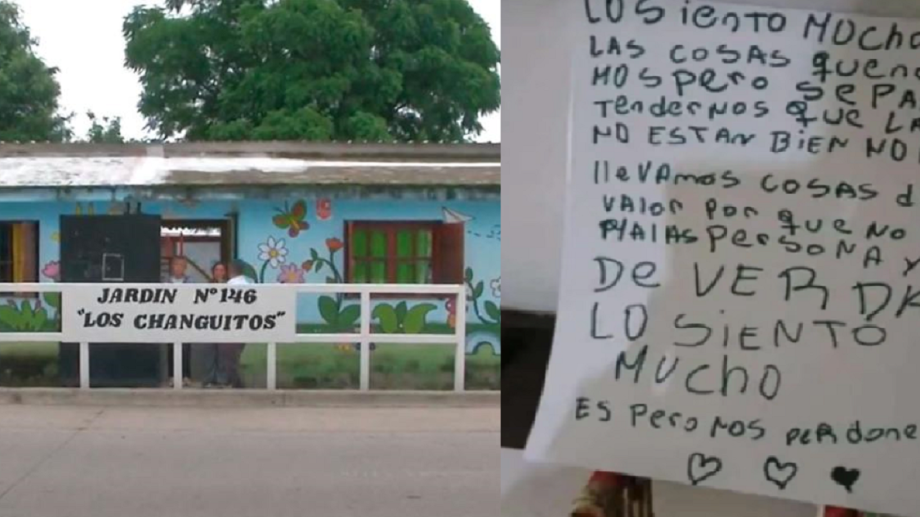 JARDIN Nº 146
"LOS CHANGUITOS"
LO Siento MUCHO
LAS COSAS que
MOS pero SEPA
Tendernos que LA
NO ESTAN BIEN NO
llevamos cosas d
VALOR POR que NO
MALAS PersonA y
De VERDA
LO SiENTO
MUCHO
ES Pero NOS PERdone